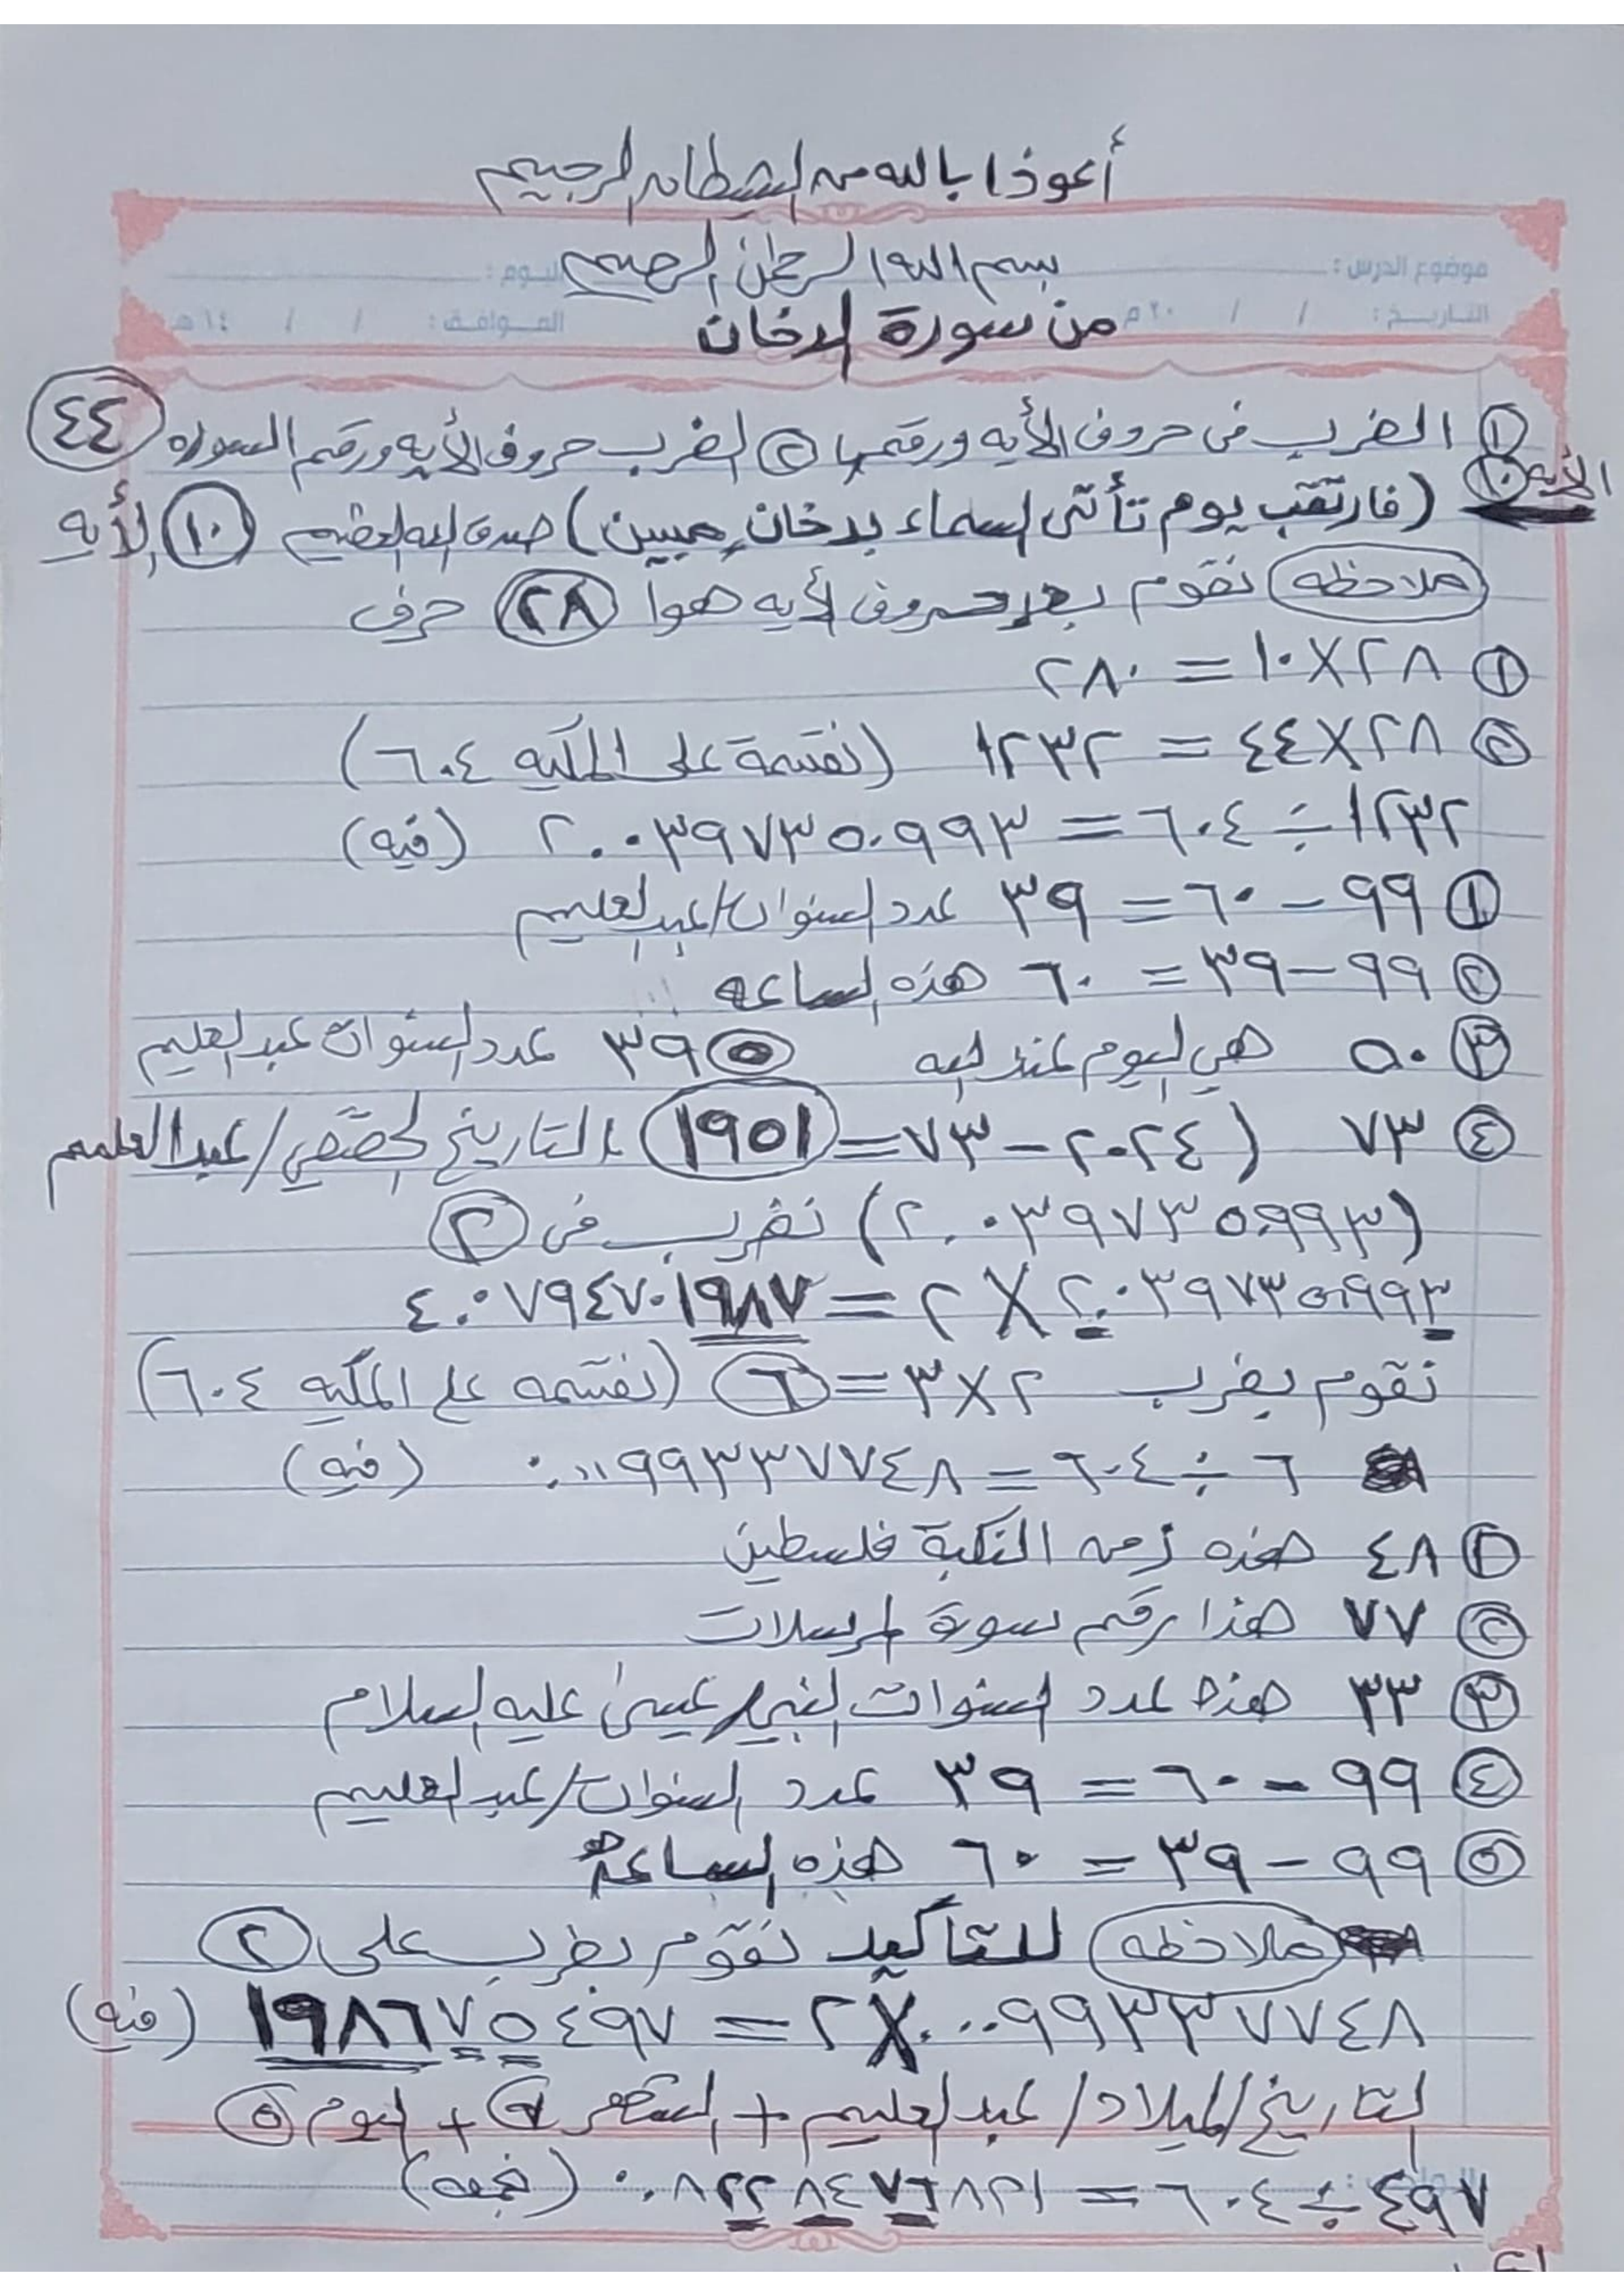 أعوذا بالله من الشيطان الرجيم
بسم الله الرحمن الرحيم
موضوع الدرس : اليوم :
التاريخ : / / ٢٠ م الموافق : / / ١٤ هـ
من سورة الدخان
① الضرب في حروف الأيه ورقمها ② الضرب حروف الأيه ورقم السوره ٤٤
الأيه ١٠
(فارتقب يوم تأتي السماء بدخان مبين) صدق الله العظيم ١٠ الأيه
ملاحظه نقوم بعد حروف الأيه هوا ٢٨ حرف
① ٢٨ X ١٠ = ٢٨٠
② ٢٨ X ٤٤ = ١٢٣٢ (نقسمة على المكيه ٦٠٤)
١٢٣٢ ÷ ٦٠٤ = ٢.٠٣٩٧٣٥٠٩٩٣ (فيه)
① ٩٩ - ٦٠ = ٣٩ عدد السنوات/عبدالعليم
② ٩٩ - ٣٩ = ٦٠ هذه الساعه
③ ٥٠ هي اليوم عند الله ⑤ ٣٩ عدد السنوات عبدالعليم
④ ٧٣ (٢٠٢٤ - ٧٣ = ١٩٥١ التاريخ الحقيقي/عبدالعليم
(٢.٠٣٩٧٣٥٠٩٩٣) نضرب في ②
٢.٠٣٩٧٣٥٠٩٩٣ X ٢ = ٤.٠٧٩٤٧٠١٩٨٧
نقوم بضرب ٢ X ٣ = ٦ (نقسمه على المكيه ٦٠٤)
٦ ÷ ٦٠٤ = ٠.٠٠٩٩٣٣٧٧٤٨ (فيه)
① ٤٨ هذه زمن النكبة فلسطين
② ٧٧ هذا رقم سورة المرسلات
③ ٣٣ هذا عدد السنوات النبي/عيسى عليه السلام
④ ٩٩ - ٦٠ = ٣٩ عدد السنوات/عبدالعليم
⑤ ٩٩ - ٣٩ = ٦٠ هذه الساعة
ملاحظه للتأكيد نقوم بضرب على ②
٠.٠٠٩٩٣٣٧٧٤٨ X ٢ = ١٩٨٦٧٥٤٩٧ (فيه)
التاريخ/الميلاد/عبدالعليم + الشهر ٧ + اليوم ⑤
٤٩٧ ÷ ٦٠٤ = ٠.٨٢٢٨٤٧٦٨٢١ (نجمعه)